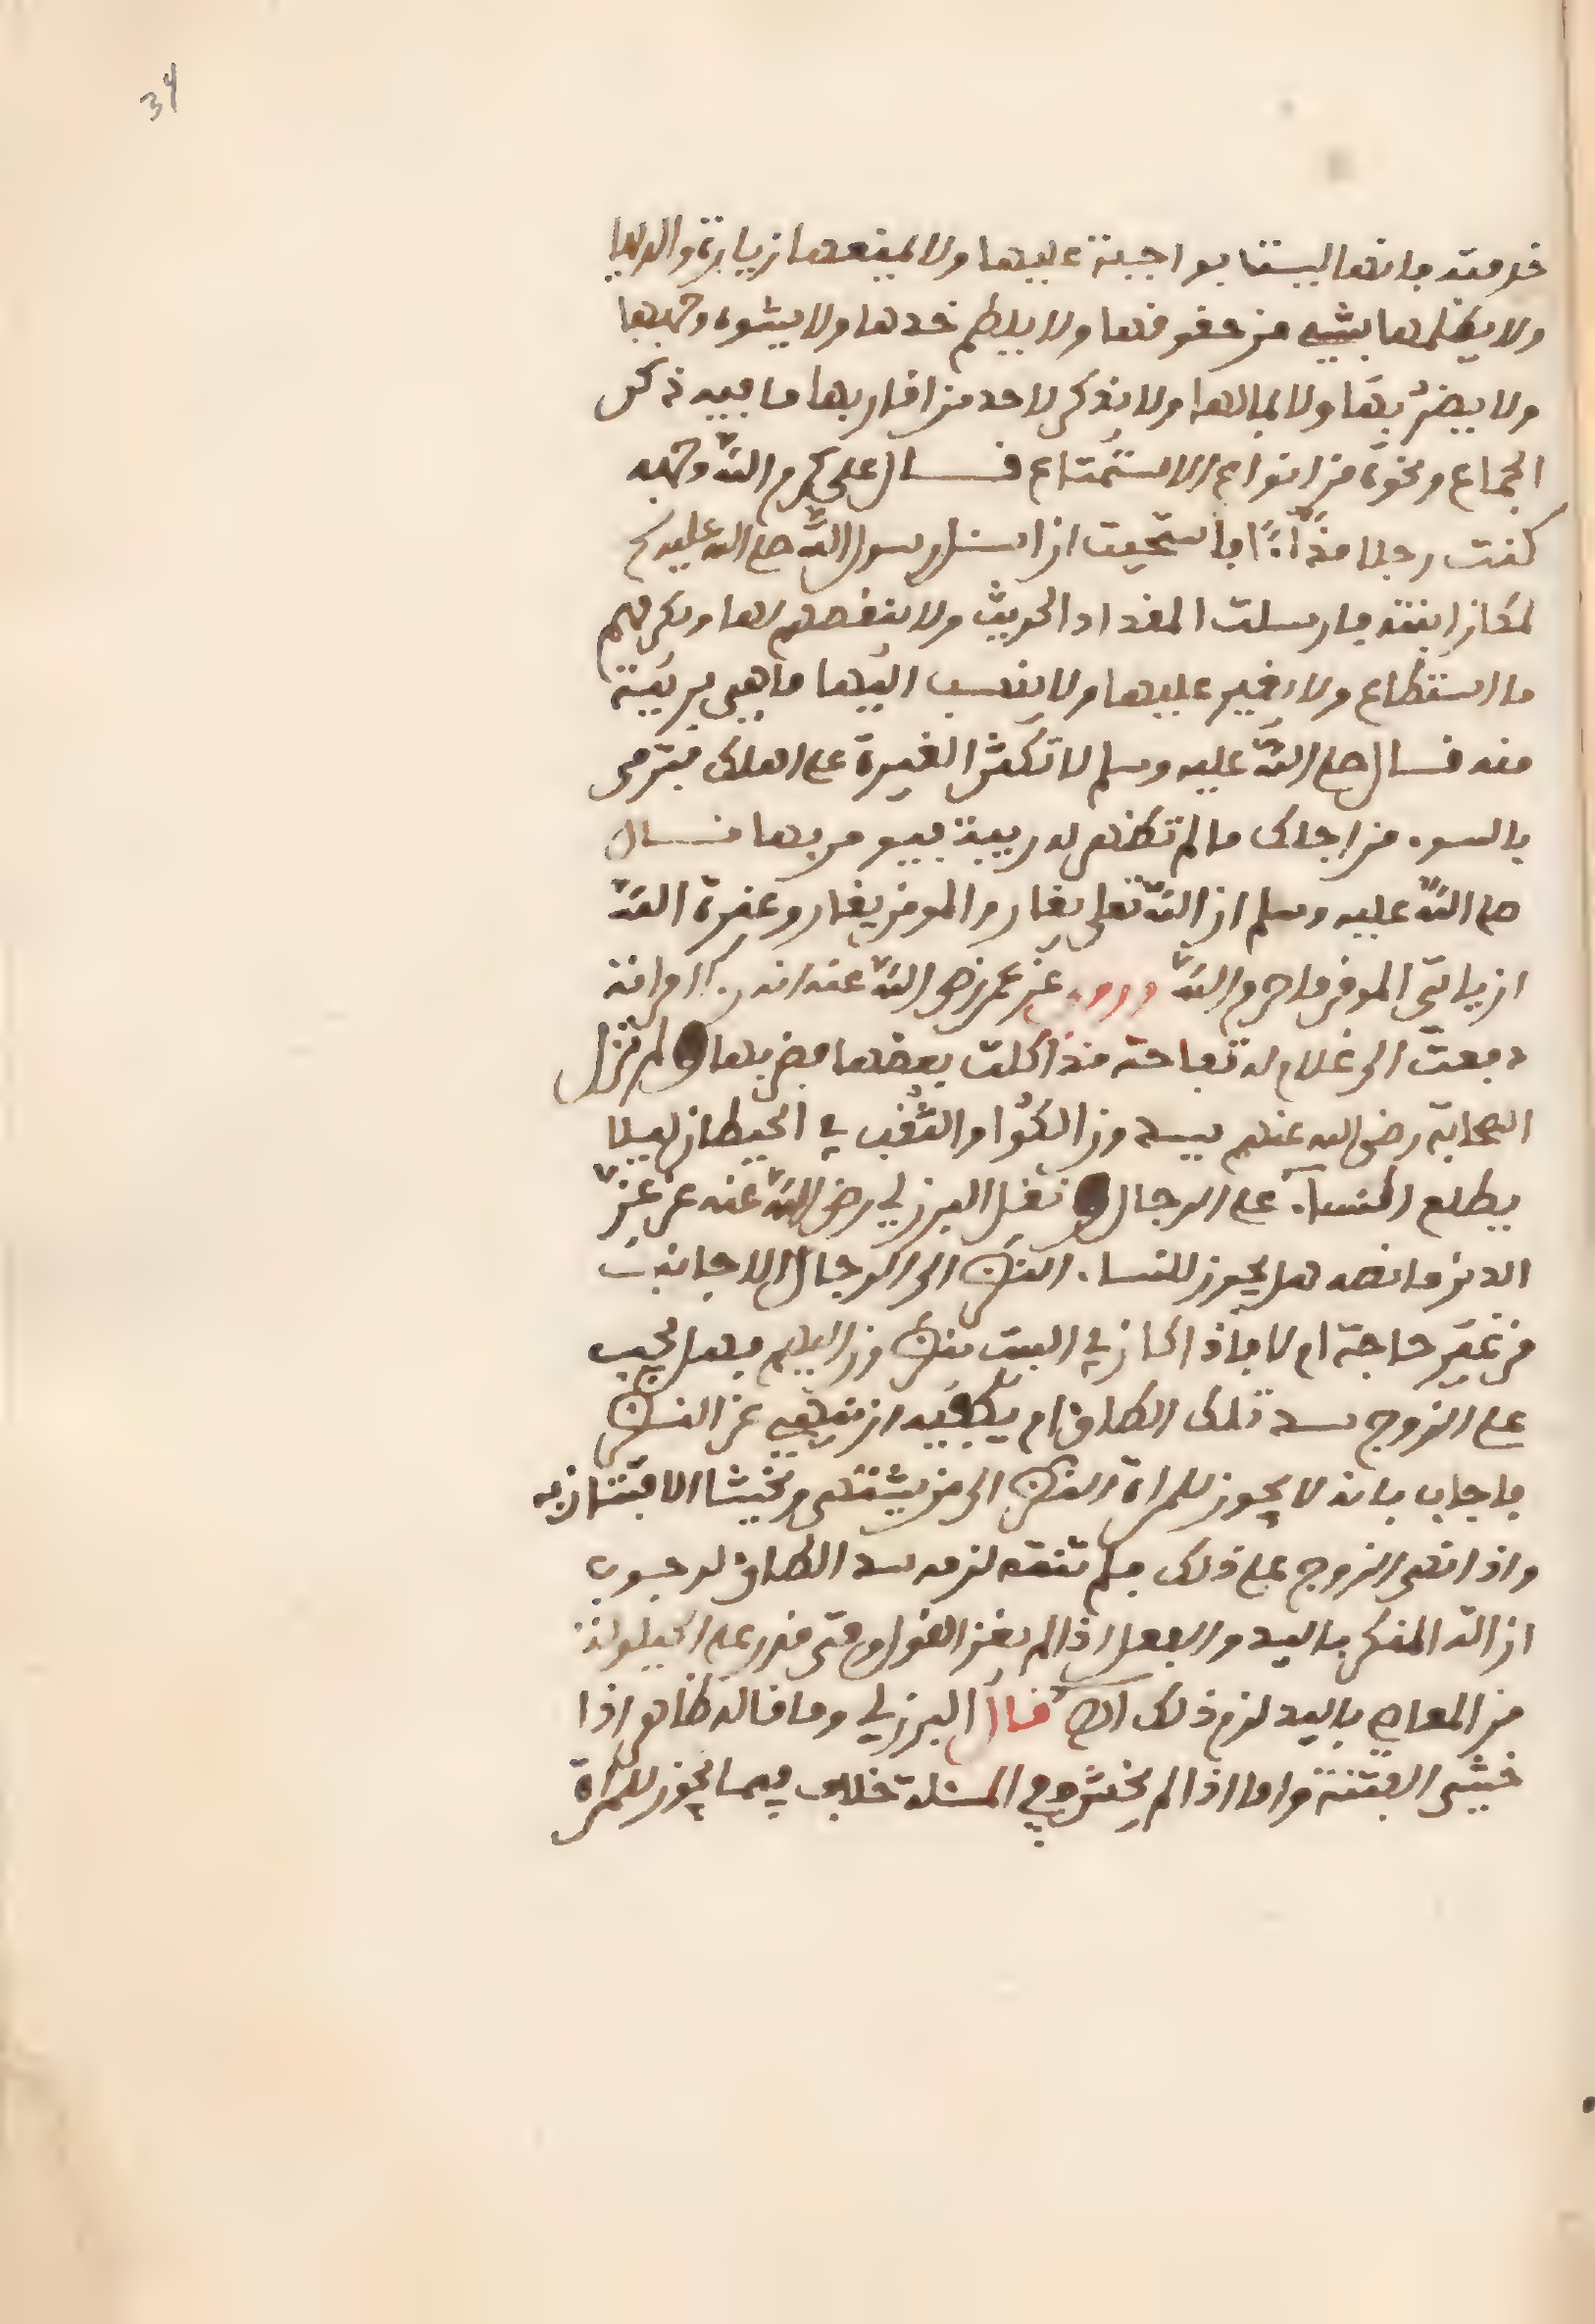 34
خدمته فانها ليست بواجبة عليها ولا يمنعها زيارة والديها
ولا يظلمها بشيء من حقوقها ولا يلطم خدها ولا يشوه وجهها
ولا يضر بها ولا بمالها ولا يذكر لاحد من اقاربها ما فيه ذكر
الجماع ونحوه من انواع الاستمتاع قال علي كرم الله وجهه
كنت رجلا مذّاءً فاستحيت ان اسئل رسول الله صلى الله عليه
لمكان ابنته فارسلت المقداد الحديث ولا ينقصهم لها ويكرمهم
ما استطاع ولا يغير عليها ولا ينسب اليها ما هي بريئة
منه قال صلى الله عليه وسلم لا تكثر الغيرة على اهلك فترمى
بالسوء من اجلك ما لم تظهر له ريبة فيومر بها قال
صلى الله عليه وسلم ان الله تعلى يغار والمومن يغار وغيرة الله
ان ياتي المومن ما حرم الله وروي عن عمر رضي الله عنه انه را امراته
دفعت الى غلام له تفاحة قد اكلت بعضها فضربها ولم تزل
الصحابة رضي الله عنهم يسدون الكُوّا والثُّقُب في الحيطان ليلا
يطلع النساء على الرجال ونقل البرزلي رضي الله عنه عن عزّ
الدين ما نصه هل يجوز للنساء النظر الى الرجال الاجانب
من غير حاجة ام لا فاذا كان في البيت ينظرون اليهم فهل يجب
على الزوج سد تلك الطاق ام يكفيه ان ينهى عن النظر
فاجاب بانه لا يجوز للمراة النظر الى من يشتهى ويخشا الافتتان به
واذا نهى الزوج على ذلك فلم تنته لزمه سد الطاق لوجوب
ازالة المنكر باليد والفعل اذا لم يغن القول ومتى قدر على الحيلولة
من المعاصي باليد لزم ذلك اهـ قال البرزلي وما قاله ظاهر اذا
خشي الفتنة واما اذا لم يخش ففي المسئلة خلاف فيما يجوز للمراة